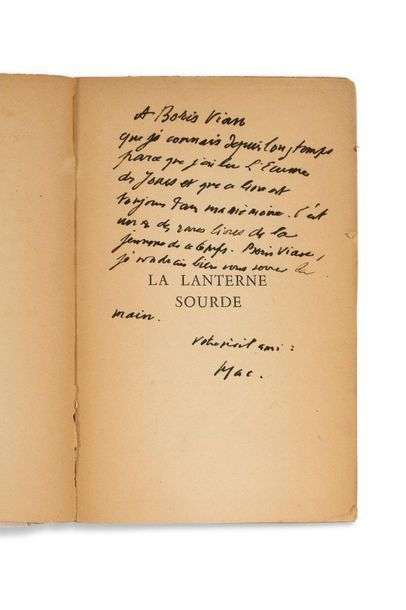 A Boris Vian
que je connais depuis longtemps
parce que j'ai lu L'Ecume
des Jours et que ce livre est
toujours dans ma mémoire. C'est
un des rares livres de la
jeunesse de ce temps. Boris Vian,
je voudrais bien vous serrer la
LA LANTERNE
SOURDE
main.
Votre vieil ami :
Mac.